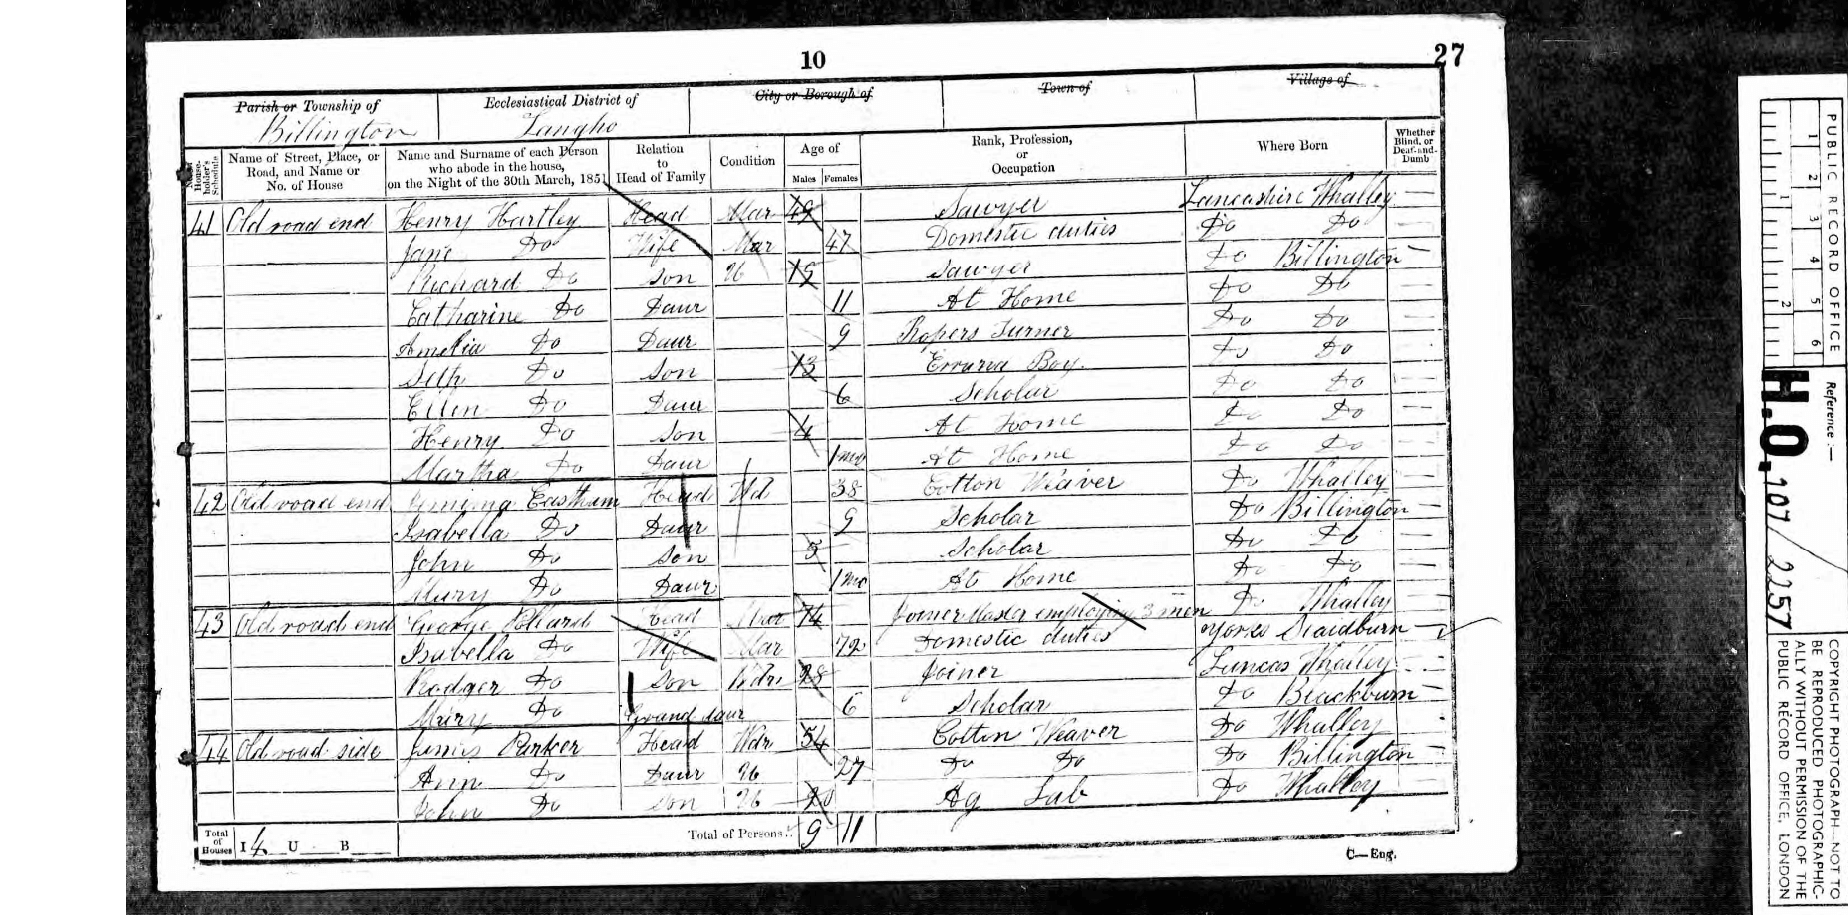 10
27
Parish or Township of
Ecclesiastical District of
City or Borough of
Town of
Village of
Billington
Langho
House-holder's Schedule
Name of Street, Place, or Road, and Name or No. of House
Name and Surname of each Person who abode in the house, on the Night of the 30th March, 1851
Relation to Head of Family
Condition
Age of
Males Females
Rank, Profession, or Occupation
Where Born
Whether Blind, or Deaf-and-Dumb
41 Old road end Henry Hartley Head Mar 49 Sawyer Lancashire Whalley
Jane Do Wife Mar 47 Domestic duties Do Do
Richard Do Son U 15 Sawyer Do Billington
Catharine Do Daur 11 At Home Do Do
Amelia Do Daur 9 Ropers Turner Do Do
Seth Do Son 13 Errand Boy. Do Do
Ellen Do Daur 6 Scholar Do Do
Henry Do Son 4 At Home Do Do
Martha Do Daur 1 mo At Home Do Do
42 Old road end Jemima Eastham Head Wd 38 Cotton Weaver Do Whalley
Isabella Do Daur 9 Scholar Do Billington
John Do Son 5 Scholar Do Do
Mary Do Daur 1 mo At Home Do Do
43 Old road end George Head Mar 74 Joiner Master employing 3 men Do Whalley
Isabella Do Wife Mar 72 Domestic duties Yorks Slaidburn
Rodger Do Son Wdr 28 Joiner Lancas Whalley
Mary Do Grand daur 6 Scholar Do Blackburn
44 Old road side James Parker Head Wdr 54 Cotton Weaver Do Whalley
Ann Do Daur U 27 Do Do Do Billington
John Do Son U 20 Ag Lab Do Whalley
Total of Houses I 4 U B
Total of Persons.. 9 11
C—Eng.
PUBLIC RECORD OFFICE
1 2 3 4 5 6
1 2
Reference :—
H.O. 107/2257
COPYRIGHT PHOTOGRAPH—NOT TO
BE REPRODUCED PHOTOGRAPHIC-
ALLY WITHOUT PERMISSION OF THE
PUBLIC RECORD OFFICE, LONDON